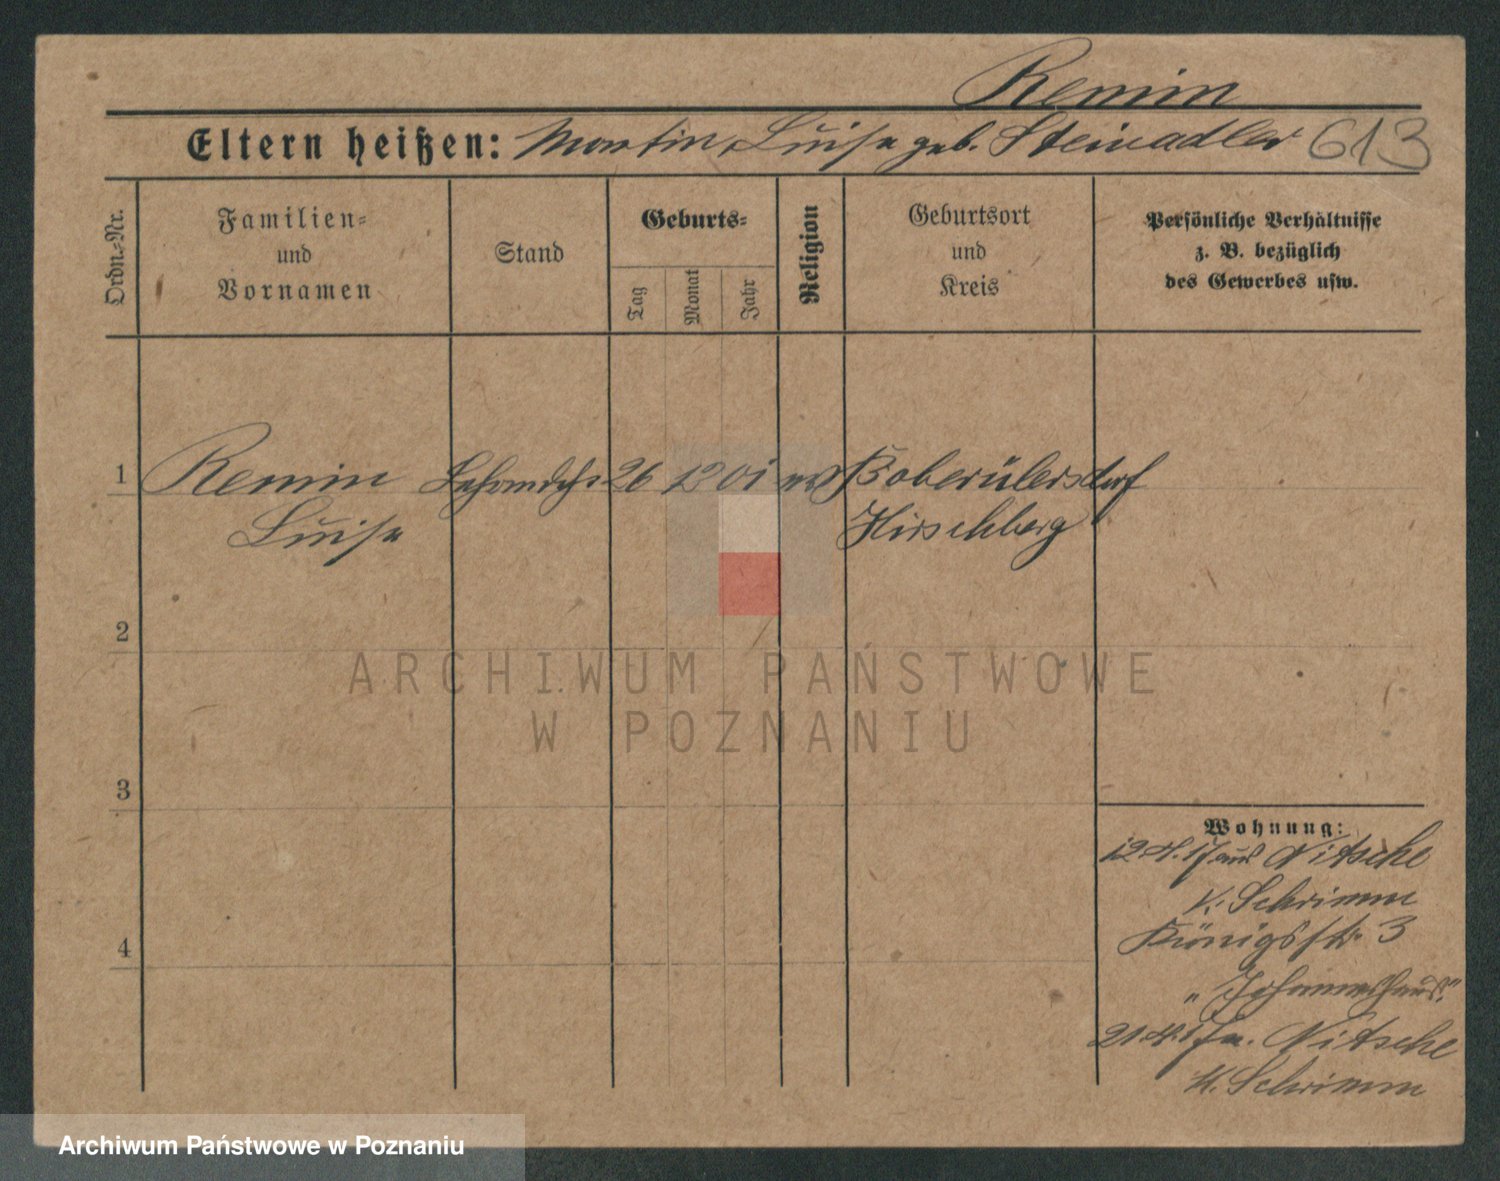 Remin
Eltern heißen: Martin, Luise geb. Steinadler 613
Ordn.-Nr.
Familien-
und
Vornamen
Stand
Geburts-
Tag
Monat
Jahr
Religion
Geburtsort
und
Kreis
Persönliche Verhältnisse
z. B. bezüglich
des Gewerbes usw.
1 Remin 26 12 01 Boberülersdorf
Luise Hirschberg
2
3
4
Wohnung:
12.4.17 aus Nitsche
K. Schrimm
Königsstr. 3
"Johanneshaus."
21.4.17 Nitsche
K. Schrimm
ARCHIWUM PAŃSTWOWE
W POZNANIU
Archiwum Państwowe w Poznaniu